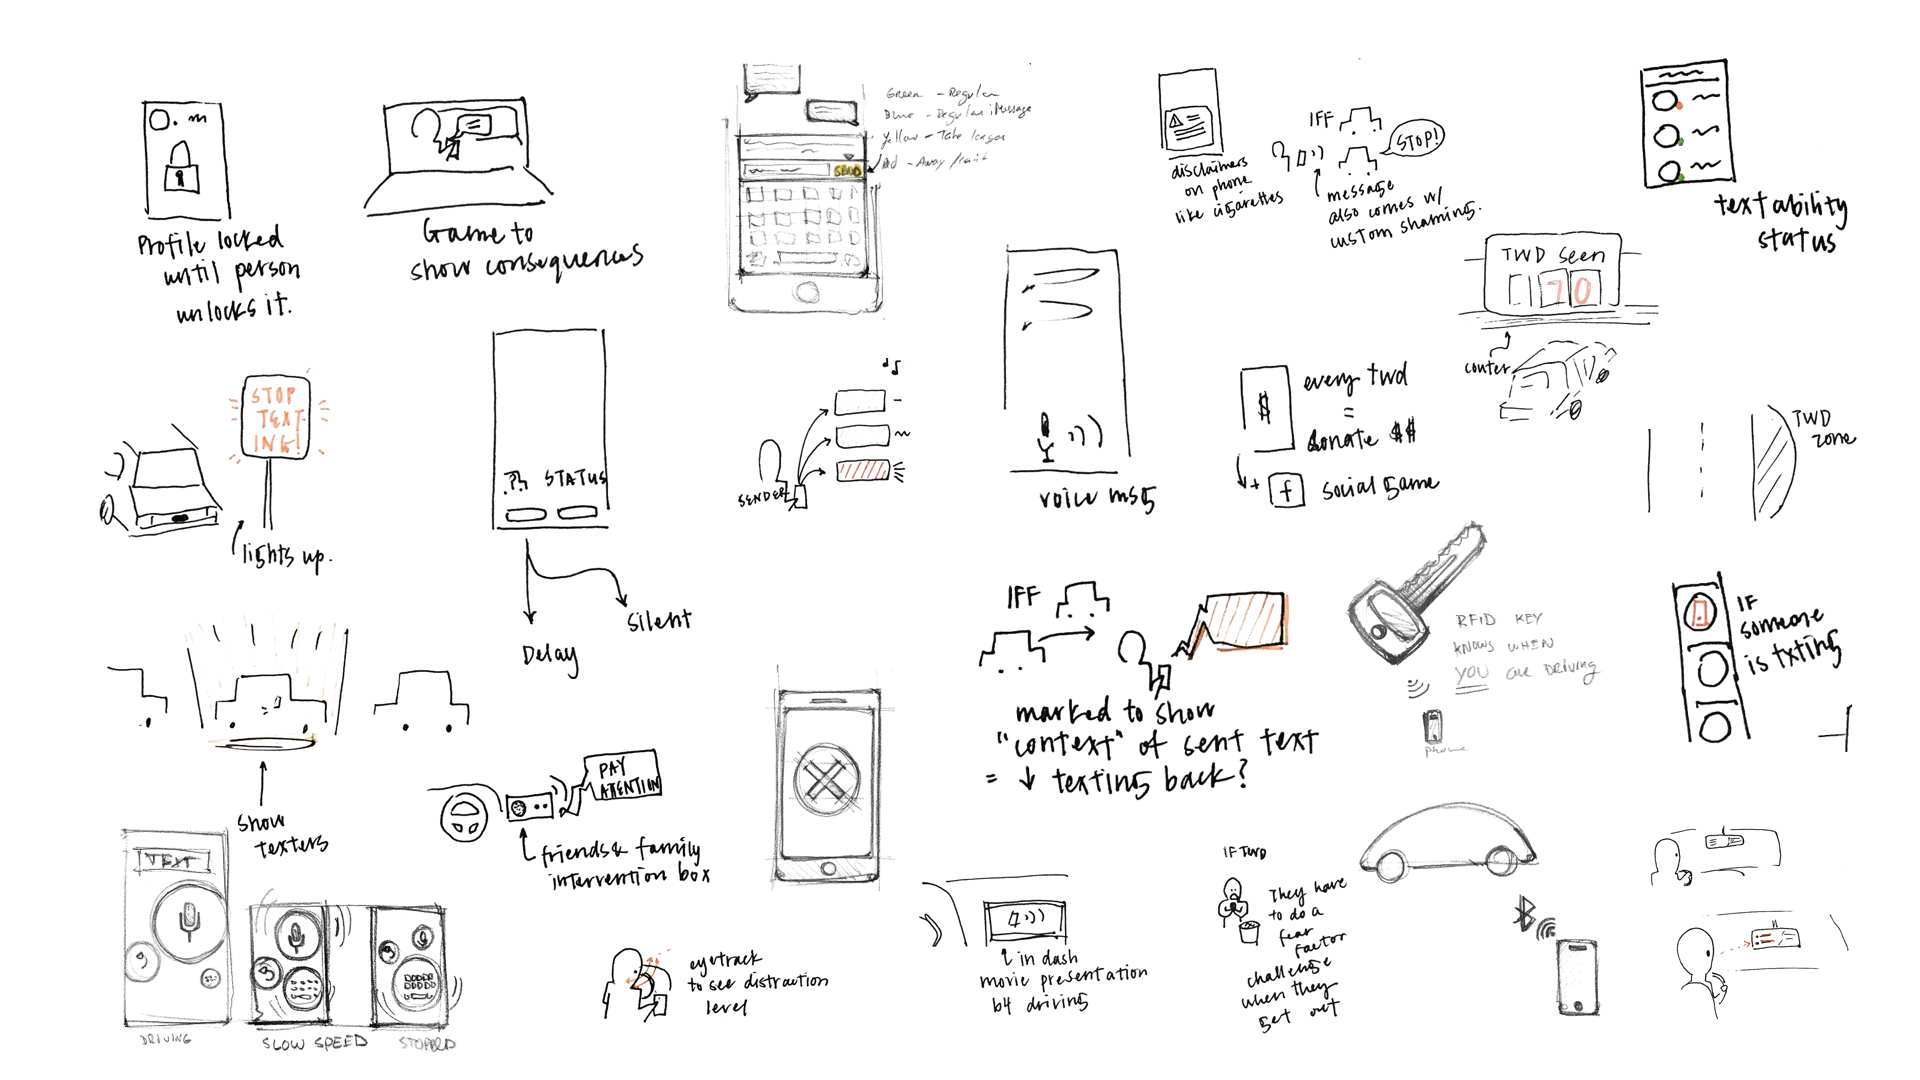 Profile locked
until person
unlocks it.
Game to
show consequences
Green - Regular
Blue - Regular iMessage
Yellow - Take longer
Red - Away /
SEND
disclaimers
on phone
like cigarettes
IFF
STOP!
message
also comes w/
custom shaming.
text ability
status
TWD seen
70
conter
STOP
TEXT
ING!
lights up.
??? STATUS
Delay
Silent
SENDER
voice msg
$
every twd
=
donate $$
+ f social game
TWD
zone
show
texters
PAY
ATTENTION
friends & family
intervention box
IFF
marked to show
"context" of sent text
= ↓ texting back?
RFID KEY
KNOWS WHEN
YOU are DRIVING
phone
IF
someone
is txting
TEXT
DRIVING
SLOW SPEED
STOPPED
eyetrack
to see distraction
level
in dash
movie presentation
b4 driving
IF TWD
They have
to do a
fear
factor
challenge
when they
get out